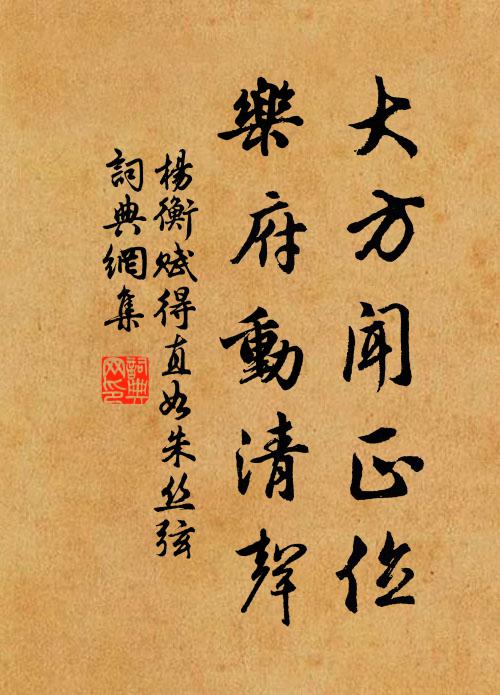 大方聞正
樂府動清聲
楊衡賦得直如朱丝弦
詞典網集
詞典
网印